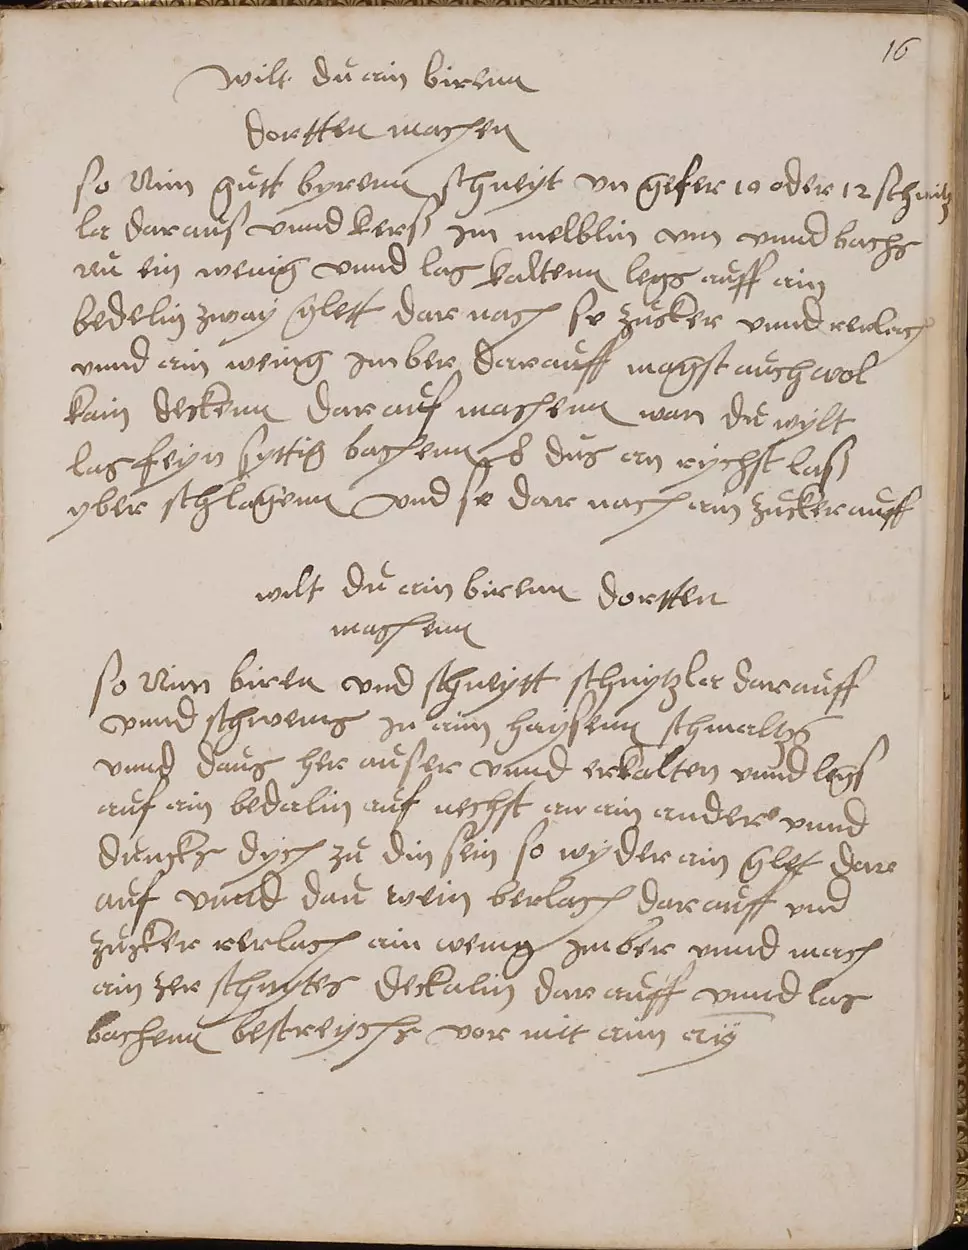 16
wilt du ain birenn
dortten machen
so Nim gutt byrenn schneyt vn gefer 10 oder 12 schnitz
la daraus vnnd kers Im melblin vm vnnd bachs
nu ein wenig vnnd las kaltenn legs auff ain
bedelin zway glett dar nach se zucker vnnd rerlach
vnnd ain wenig Imber darauff magst auch wol
kain deckenn darauf machenn wan du wylt
las feyn syttig bachenn E dus an rychst lass
yber schlagenn vnd se dar nach ain zucker auff
wilt du ain birenn dortten
machenn
so Nim biren vnd schneytt schnytzla darauff
vnnd schwems In aim haysenn schmaltz
vnnd daus her auser vnnd erkalten vnnd legs
auf ain bedalin auf nechst an ain ander vnnd
duncks dych zu din sein so wyder ain glett dar
auf vnnd dau wein berlach darauff vnd
zucker rerlach ain wenig Imber vnnd mach
ain zer schnytes deckalin darauff vnnd las
bachenn bestreychs vor mit aim ay